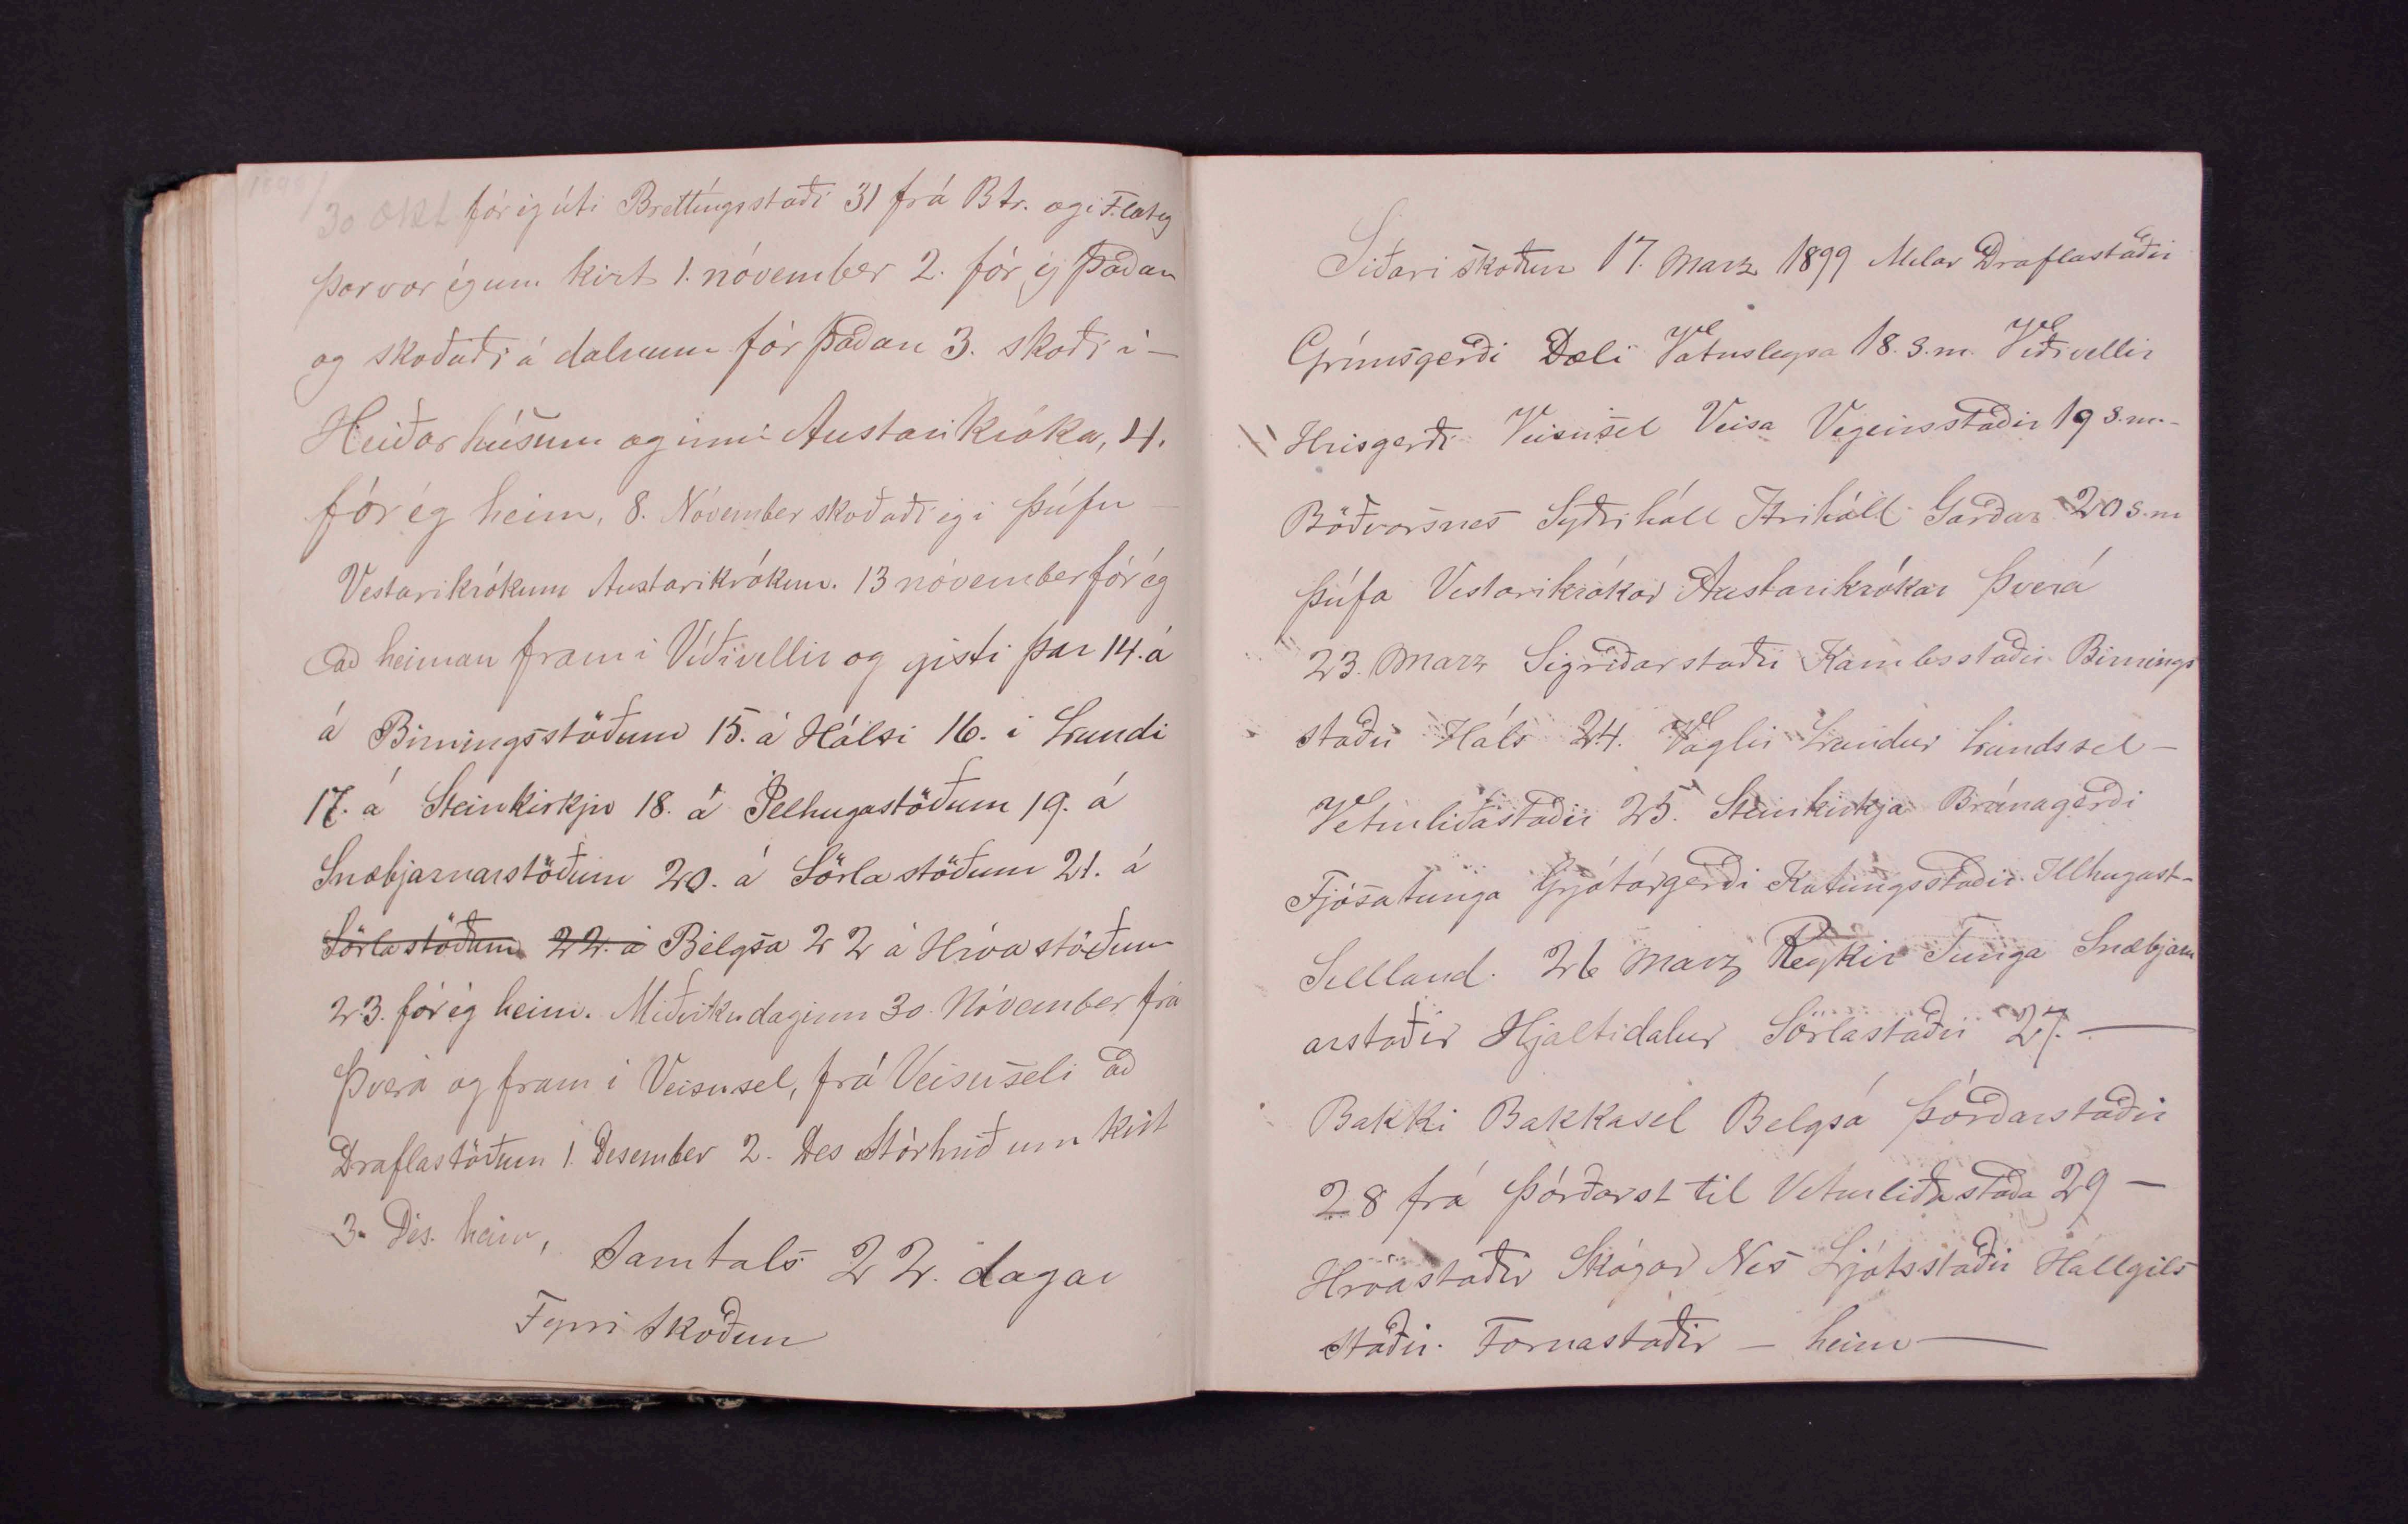 1898
30 Okt fór ég útí Brettíngsstaði 31 frá Btr. og í Flatey
þar var ég um kirt 1. nóvember 2. fór ég þaðan
og skoðaði á dalnum fór þaðan 3. skoði í –
Heiðarhúsum og inní Austarikróka, 4.
fór ég heim, 8. Nóvember skoðaði eg i Þúfu –
Vestarikrókum Austarikrókum. 13 nóvember fór ég
að heiman fram í Víðivellir og gisti þar 14. á
á Birningsstöðum 15. á Hálsi 16. í Lundi
17. á Steinkirkju 18. á Illhugastöðum 19. á
Snæbjarnarstöðum 20. á Sörlastöðum 21. á
Sörlastöðum 22. á Belgsa 22 á Hróastöðum
23. fór ég heim. Miðvikudaginn 30. Nóvember frá
Þverá og fram í Veisusel, frá Veisuseli að
Draflastöðum 1. Desember 2. Des Stórhríð um kirt
3. Des. heim, Samtals 22. dagar
Fyrri skoðun
Síðari skoðun 17. Marz 1899 Melar Draflastaðir
Grímsgerði Dæli Vatnsleysa 18. s.m. Víðivellir
Hrisgerði Veisusel Veisa Vegeirsstaðir 19 s.m. –
Böðvarsnes Syðriháll Ytriháll Garðar 20 s.m
Þúfa Vestarikrókar Austarikrókar Þverá
23. Marz Sigríðarstaðir Kambsstaðir Birnings
staðir Háls 24. Vaglir Lundur Lundssel –
Veturliðastaðir 25. Steinkirkja Brúnagerði
Fjósatunga Grjótárgerði Kotungsstaðir. Illhugast –
Selland. 26 Marz Reykir Tunga Snæbjarn
arstaðir Hjaltidalur Sörlastaðir 27. –
Bakki Bakkasel Belgsá Þórðarstaðir
28 frá Þórðarst til Veturliðastaða 29 –
Hróastaðir Skógar Nes Ljótsstaðir Hallgils
staðir. Fornastaðir – heim –